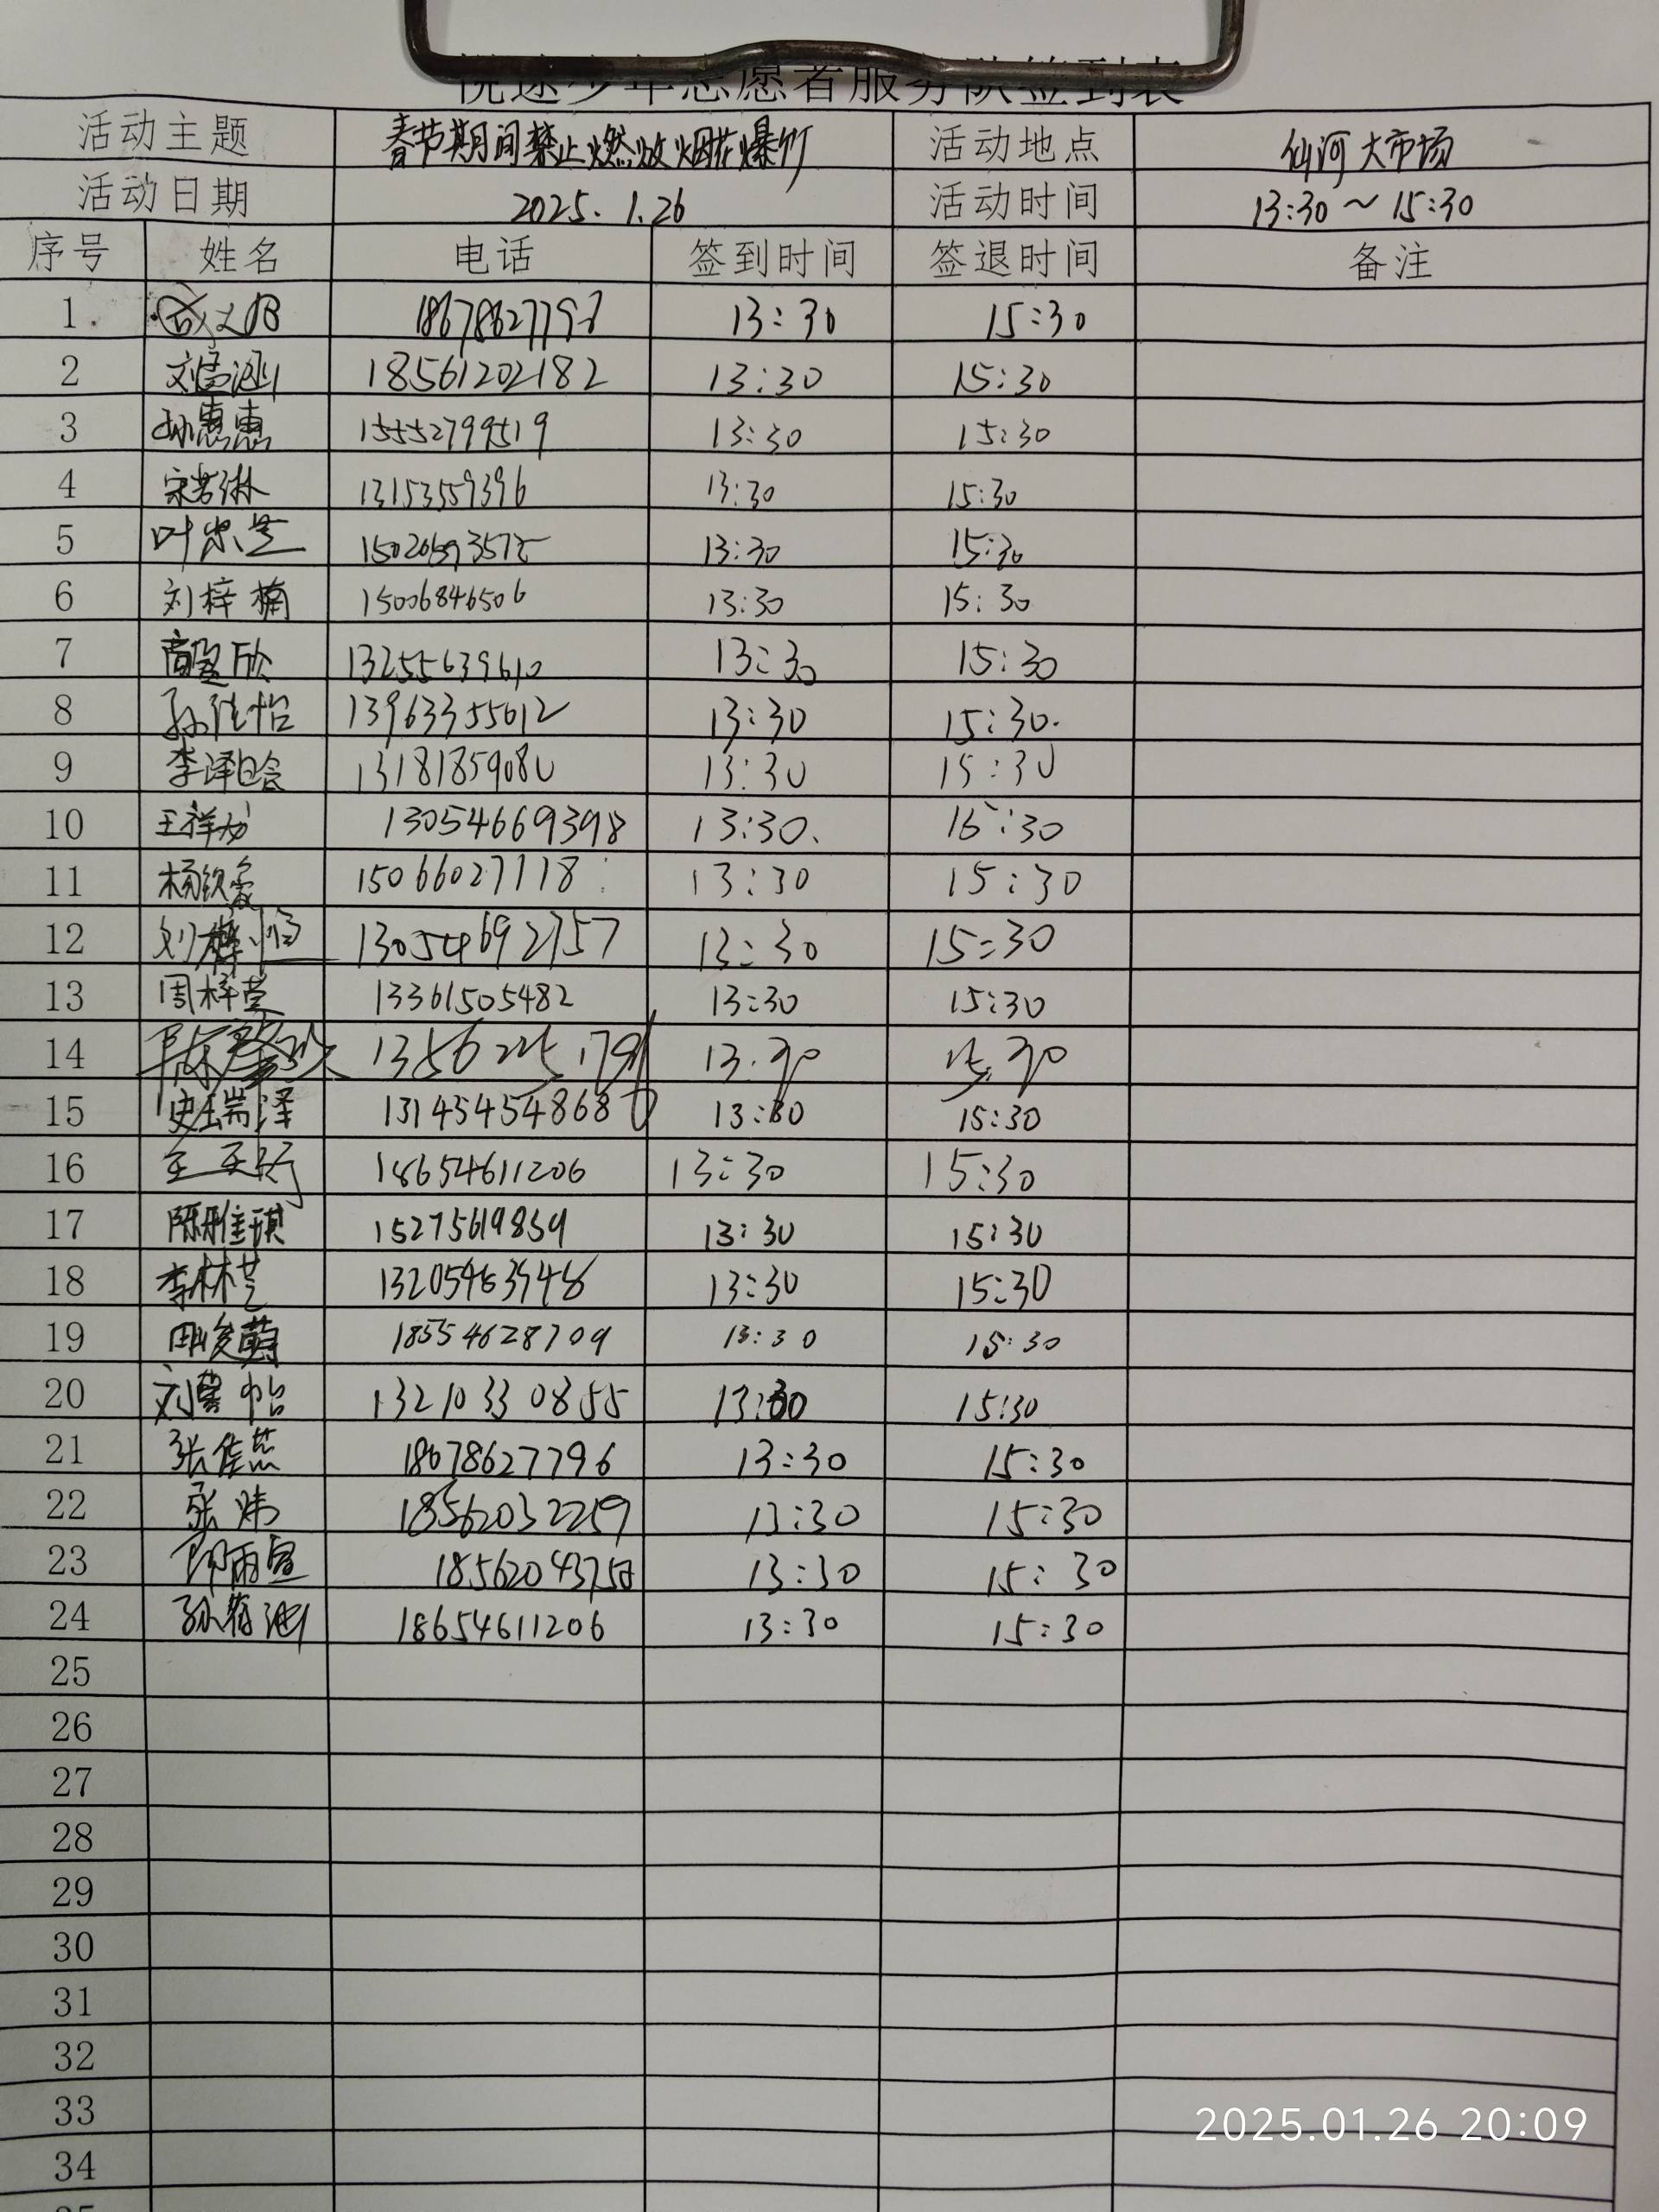 少年志愿者服务队签到表
活动主题 春节期间禁止燃放烟花爆竹 活动地点 仙河大市场
活动日期 2025.1.26 活动时间 13:30～15:30
序号 姓名 电话 签到时间 签退时间 备注
1 13:30 15:30
2 18561202182 13:30 15:30
3 孙惠惠 15552799519 13:30 15:30
4 宋若琳 13153559396 13:30 15:30
5 13:30 15:30
6 刘梓楠 15006846506 13:30 15:30
7 13255639610 13:30 15:30
8 孙佳怡 13963355612 13:30 15:30.
9 李泽晗 13181859080 13:30 15:30
10 13054669398 13:30. 15:30
11 15066027118 13:30 15:30
12 13054692757 13:30 15:30
13 周梓萱 13361505482 13:30 15:30
14 13.30 15.30
15 史瑞泽 13145454868 13:30 15:30
16 18654611206 13:30 15:30
17 陈雅琪 15275619859 13:30 15:30
18 李林芝 13:30 15:30
19 18554628709 13:30 15:30
20 13210330855 13:30 15:30
21 张佳蕊 18678627796 13:30 15:30
22 张炜 18562032259 13:30 15:30
23 13:30 15:30
24 18654611206 13:30 15:30
25
26
27
28
29
30
31
32
33
34
2025.01.26 20:09